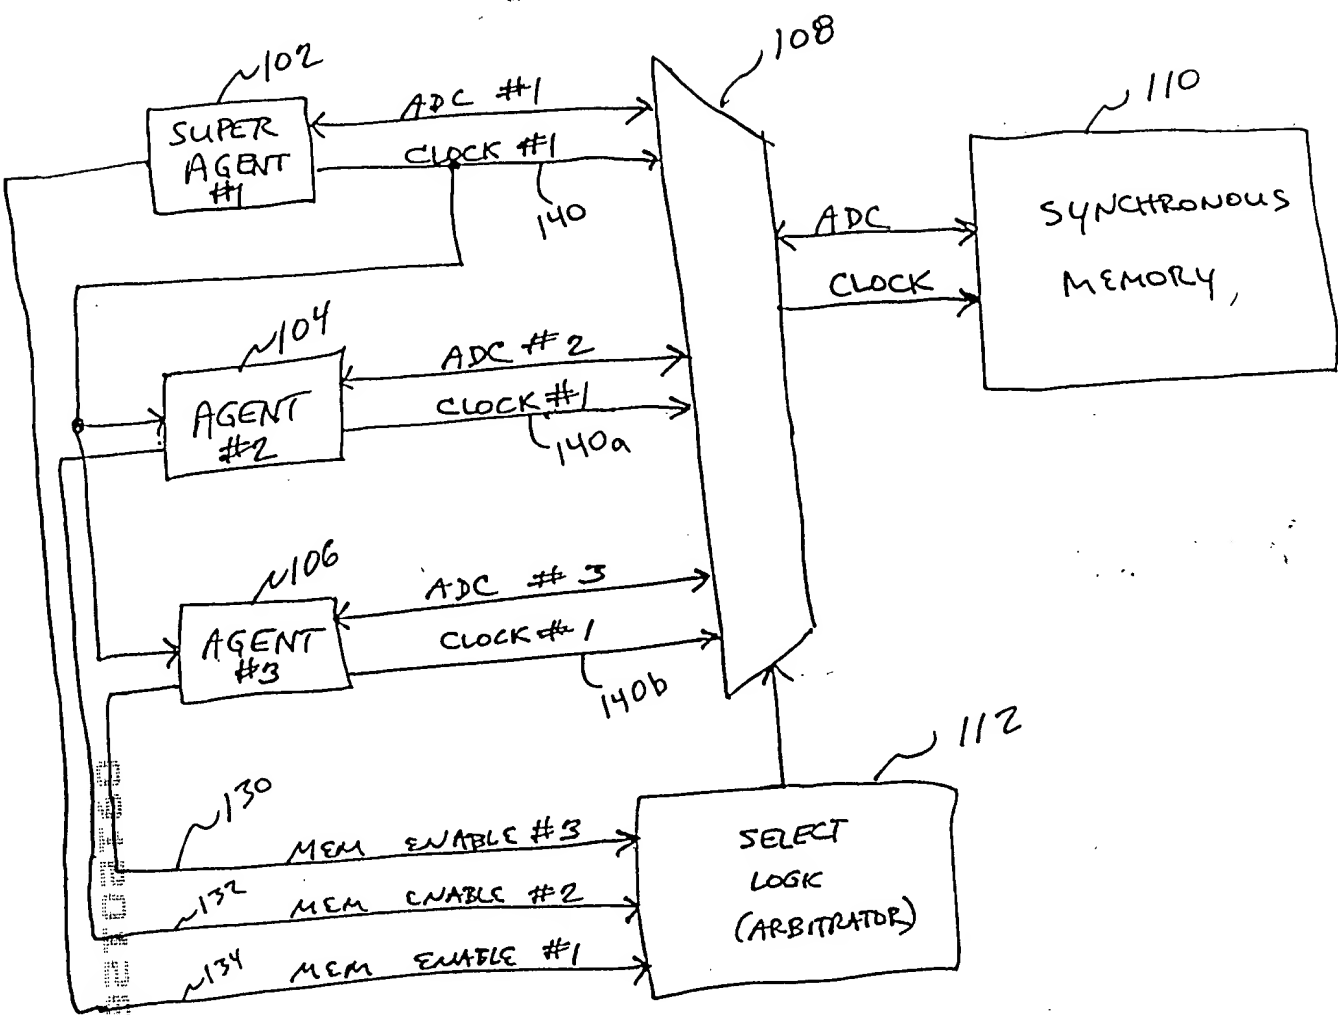 102
SUPER
AGENT
#1
ADC #1
CLOCK #1
140
108
110
SYNCHRONOUS
MEMORY,
ADC
CLOCK
104
AGENT
#2
ADC #2
CLOCK #1
140a
106
AGENT
#3
ADC #3
CLOCK #1
140b
112
SELECT
LOGIC
(ARBITRATOR)
130
MEM ENABLE #3
132
MEM ENABLE #2
134
MEM ENABLE #1